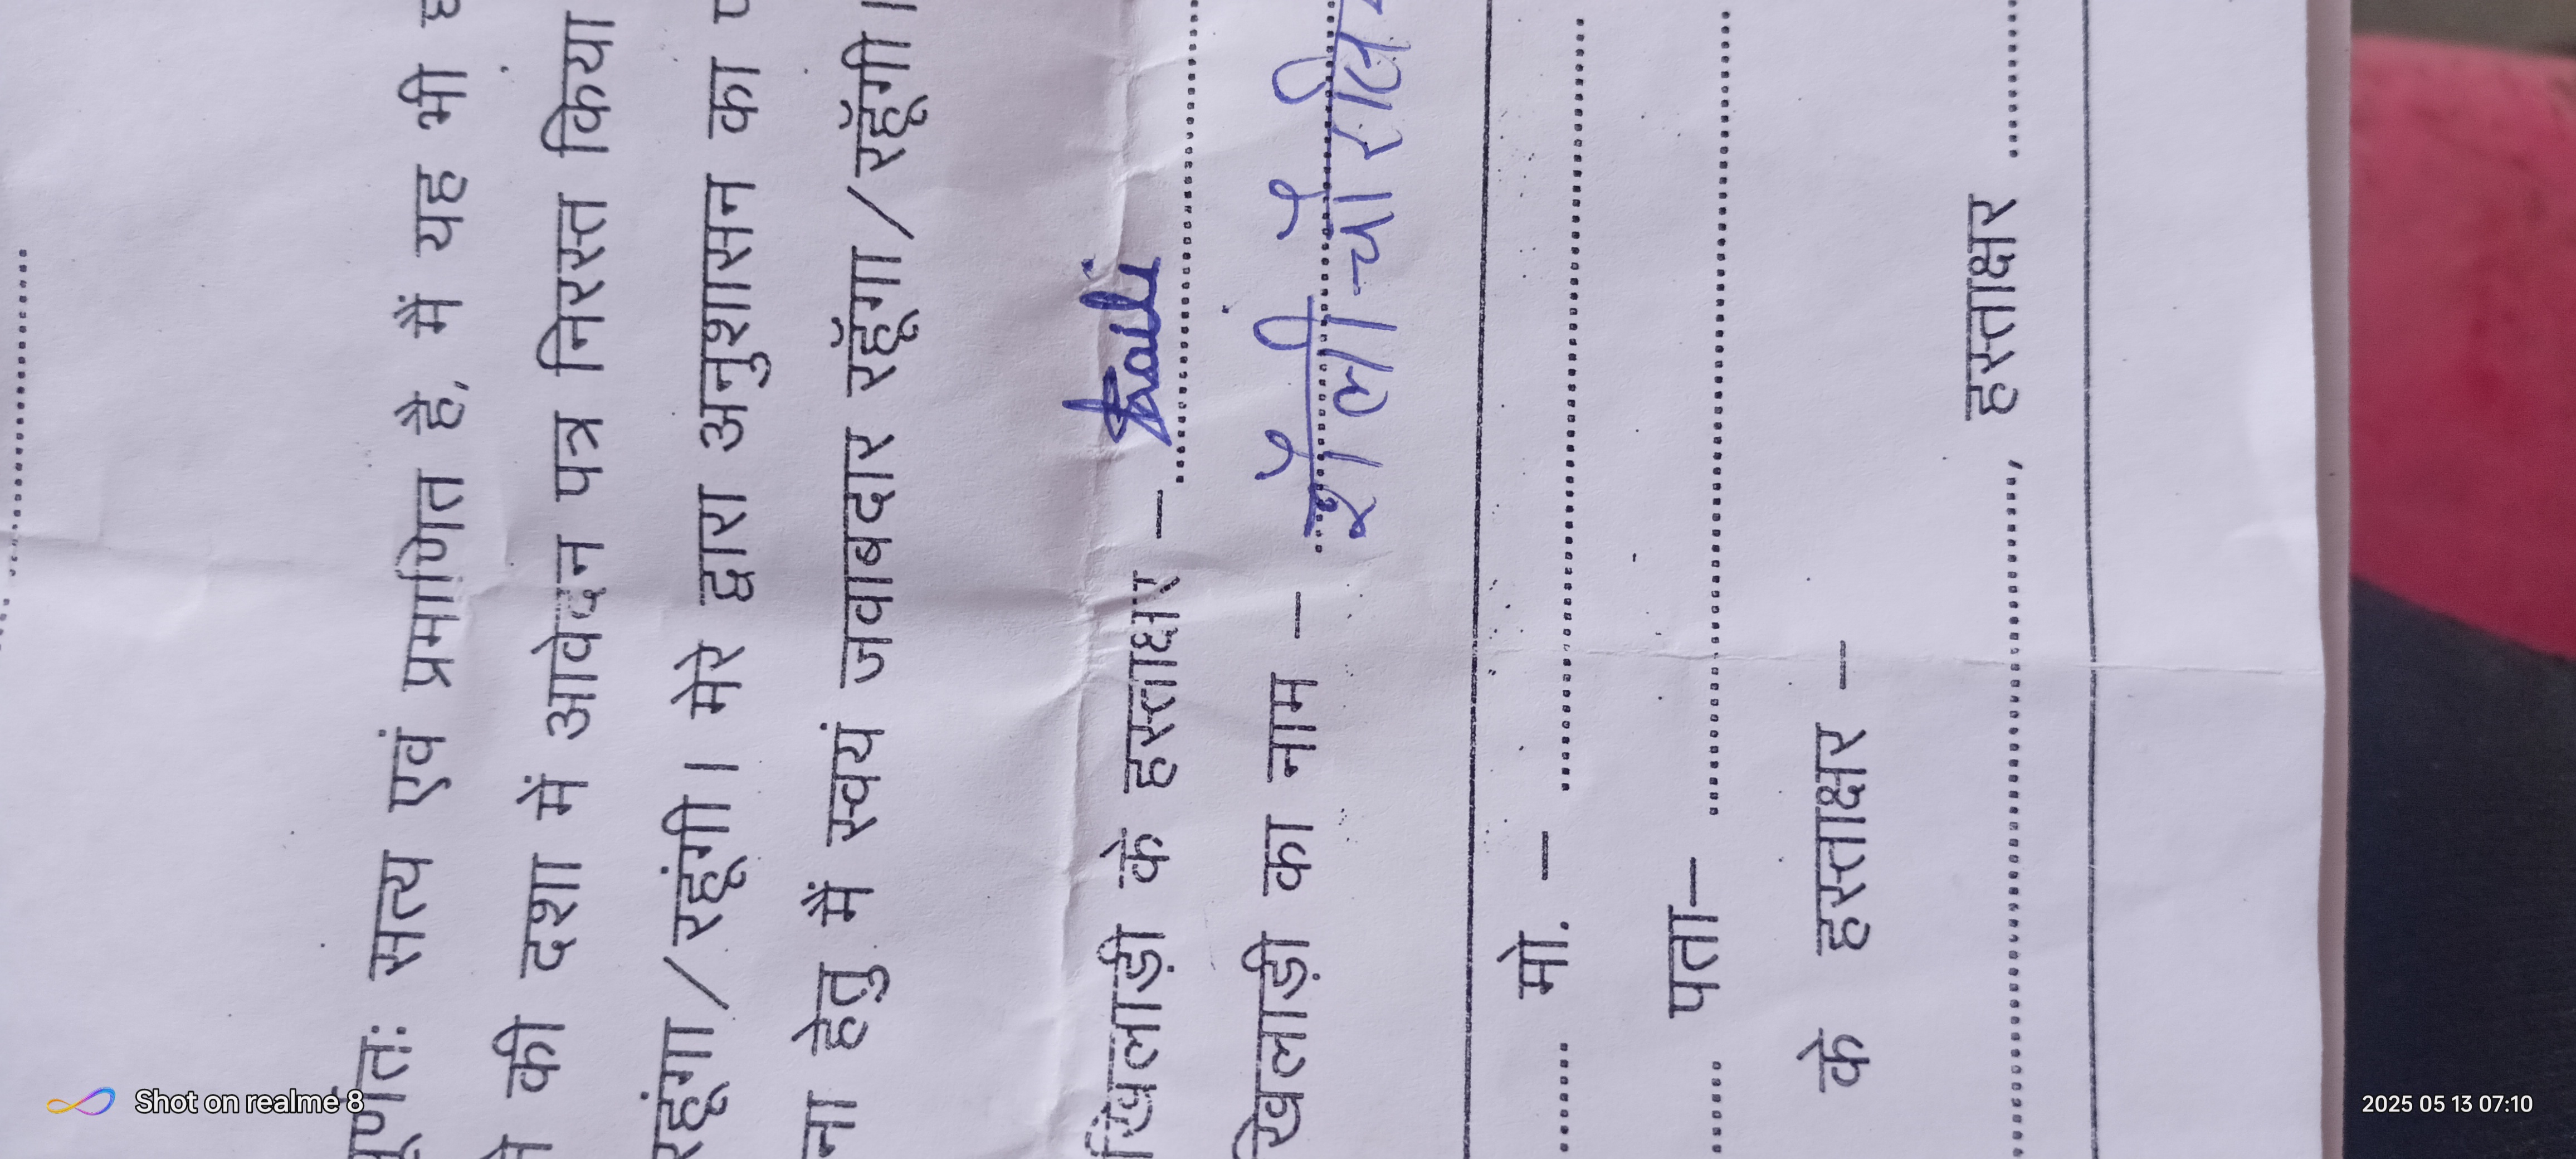 पूर्णतः सत्य एवं प्रमाणित है, मैं यह भी
की दशा में आवेदन पत्र निरस्त किया
रहूंगा / रहूंगी। मेरे द्वारा अनुशासन का
ना हेतु मैं स्वयं जवाबदार रहूँगा / रहूँगी।
खिलाड़ी के हस्ताक्षर – Shaili
खिलाड़ी का नाम – शैली
मो. –
पता–
के हस्ताक्षर –
, हस्ताक्षर
Shot on realme 8
2025 05 13 07:10